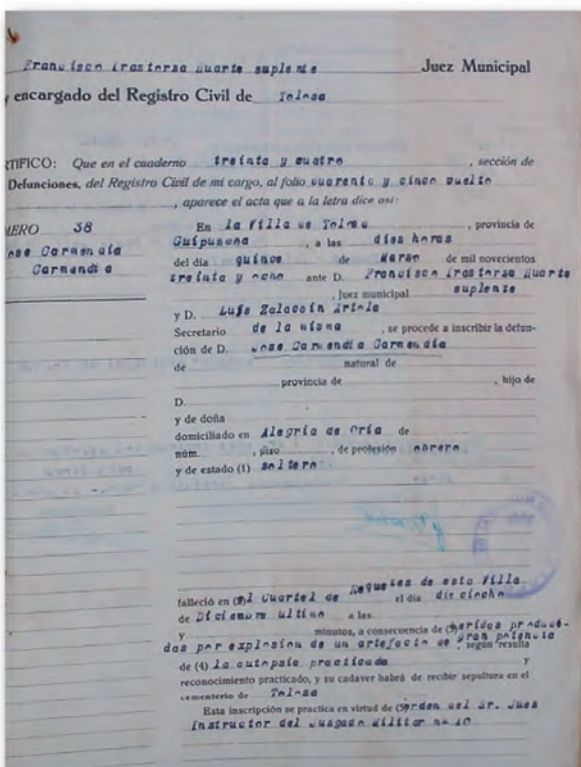 Francisco Irastorza Huarte suplente Juez Municipal
y encargado del Registro Civil de Tolosa
RTIFICO: Que en el cuaderno treinta y cuatro, sección de
Defunciones, del Registro Civil de mi cargo, al folio cuarenta y cinco vuelto
, aparece el acta que a la letra dice así:
MERO 38
ose Garmendia
Garmendia
En la Villa de Tolosa, provincia de
Guipuzcoa, a las diez horas
del día quince de Marzo de mil novecientos
treinta y ocho ante D. Francisco Irastorza Huarte
, Juez municipal suplente
y D. Luis Zalacain
Secretario de la misma, se procede a inscribir la defun-
ción de D. Jose Garmendia Garmendia
de natural de
provincia de , hijo de
D.
y de doña
domiciliado en Alegria de Oria de
núm. , piso , de profesión obrero
y de estado (1) soltero
falleció en (2) el Cuartel de Requetes de esta Villa
el día diez
de Diciembre ultimo a las
y minutos, a consecuencia de (3) heridas produci-
das por explosion de un artefacto de gran potencia, según resulta
de (4) la autopsia practicada y
reconocimiento practicado, y su cadaver habrá de recibir sepultura en el
cementerio de Tolosa
Esta inscripción se practica en virtud de (5) orden del Sr. Juez
Instructor del Juzgado Militar nº 10